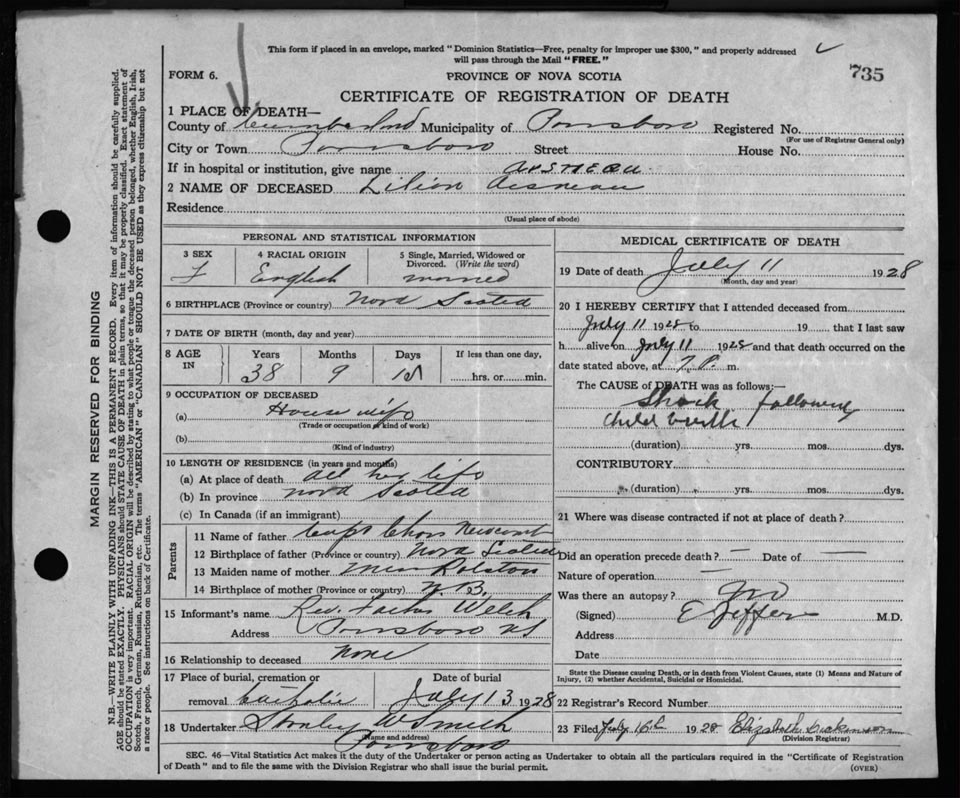 This form if placed in an envelope, marked "Dominion Statistics—Free, penalty for improper use $300," and properly addressed
will pass through the Mail "FREE."
735
FORM 6.
PROVINCE OF NOVA SCOTIA
CERTIFICATE OF REGISTRATION OF DEATH
1 PLACE OF DEATH—
County of Cumberland Municipality of Parrsboro Registered No.
(For use of Registrar General only)
City or Town Parrsboro Street House No.
If in hospital or institution, give name
2 NAME OF DECEASED Lilian
Residence
(Usual place of abode)
PERSONAL AND STATISTICAL INFORMATION
3 SEX
F
4 RACIAL ORIGIN
English
5 Single, Married, Widowed or
Divorced. (Write the word)
married
6 BIRTHPLACE (Province or country) Nova Scotia
7 DATE OF BIRTH (month, day and year)
8 AGE IN
Years Months Days If less than one day,
38 9 hrs. or min.
9 OCCUPATION OF DECEASED
(a) House wife
(Trade or occupation or kind of work)
(b)
(Kind of industry)
10 LENGTH OF RESIDENCE (in years and months)
(a) At place of death all her life
(b) In province Nova Scotia
(c) In Canada (if an immigrant)
Parents
11 Name of father Capt Chas Newcomb
12 Birthplace of father (Province or country) Nova Scotia
13 Maiden name of mother Ralston
14 Birthplace of mother (Province or country) N. B.
15 Informant's name Rev. Welch
Address Parrsboro NS
16 Relationship to deceased None
17 Place of burial, cremation or Date of burial
removal Catholic July 13 1928
18 Undertaker Stanley W Smith
(Name and address)
Parrsboro
MEDICAL CERTIFICATE OF DEATH
19 Date of death July 11 1928
(Month, day and year)
20 I HEREBY CERTIFY that I attended deceased from
July 11 1928 to 19 that I last saw
h alive on July 11 1928 and that death occurred on the
date stated above, at 7 P. m.
The CAUSE of DEATH was as follows:—
Shock following
Child birth
(duration) yrs. mos. dys.
CONTRIBUTORY
(duration) yrs. mos. dys.
21 Where was disease contracted if not at place of death?
Did an operation precede death? — Date of —
Nature of operation —
Was there an autopsy? No
(Signed) M.D.
Address
Date
State the Disease causing Death, or in death from Violent Causes, state (1) Means and Nature of
Injury, (2) whether Accidental, Suicidal or Homicidal.
22 Registrar's Record Number
23 Filed July 16th 1928 Elizabeth Dickinson
(Division Registrar)
SEC. 46—Vital Statistics Act makes it the duty of the Undertaker or person acting as Undertaker to obtain all the particulars required in the "Certificate of Registration
of Death" and to file the same with the Division Registrar who shall issue the burial permit.
(OVER)
MARGIN RESERVED FOR BINDING
N.B.—WRITE PLAINLY WITH UNFADING INK—THIS IS A PERMANENT RECORD. Every item of information should be carefully supplied.
AGE should be stated EXACTLY. PHYSICIANS should STATE CAUSE OF DEATH in plain terms, so that it may be properly classified. Exact statement of
OCCUPATION is very important. RACIAL ORIGIN will be described by stating to what people or tongue the deceased person belonged, whether English, Irish,
Scotch, French, German, Russian, Ruthenian, etc. The terms "AMERICAN" or "CANADIAN" SHOULD NOT BE USED as they express citizenship but not
a race or people. See instructions on back of Certificate.